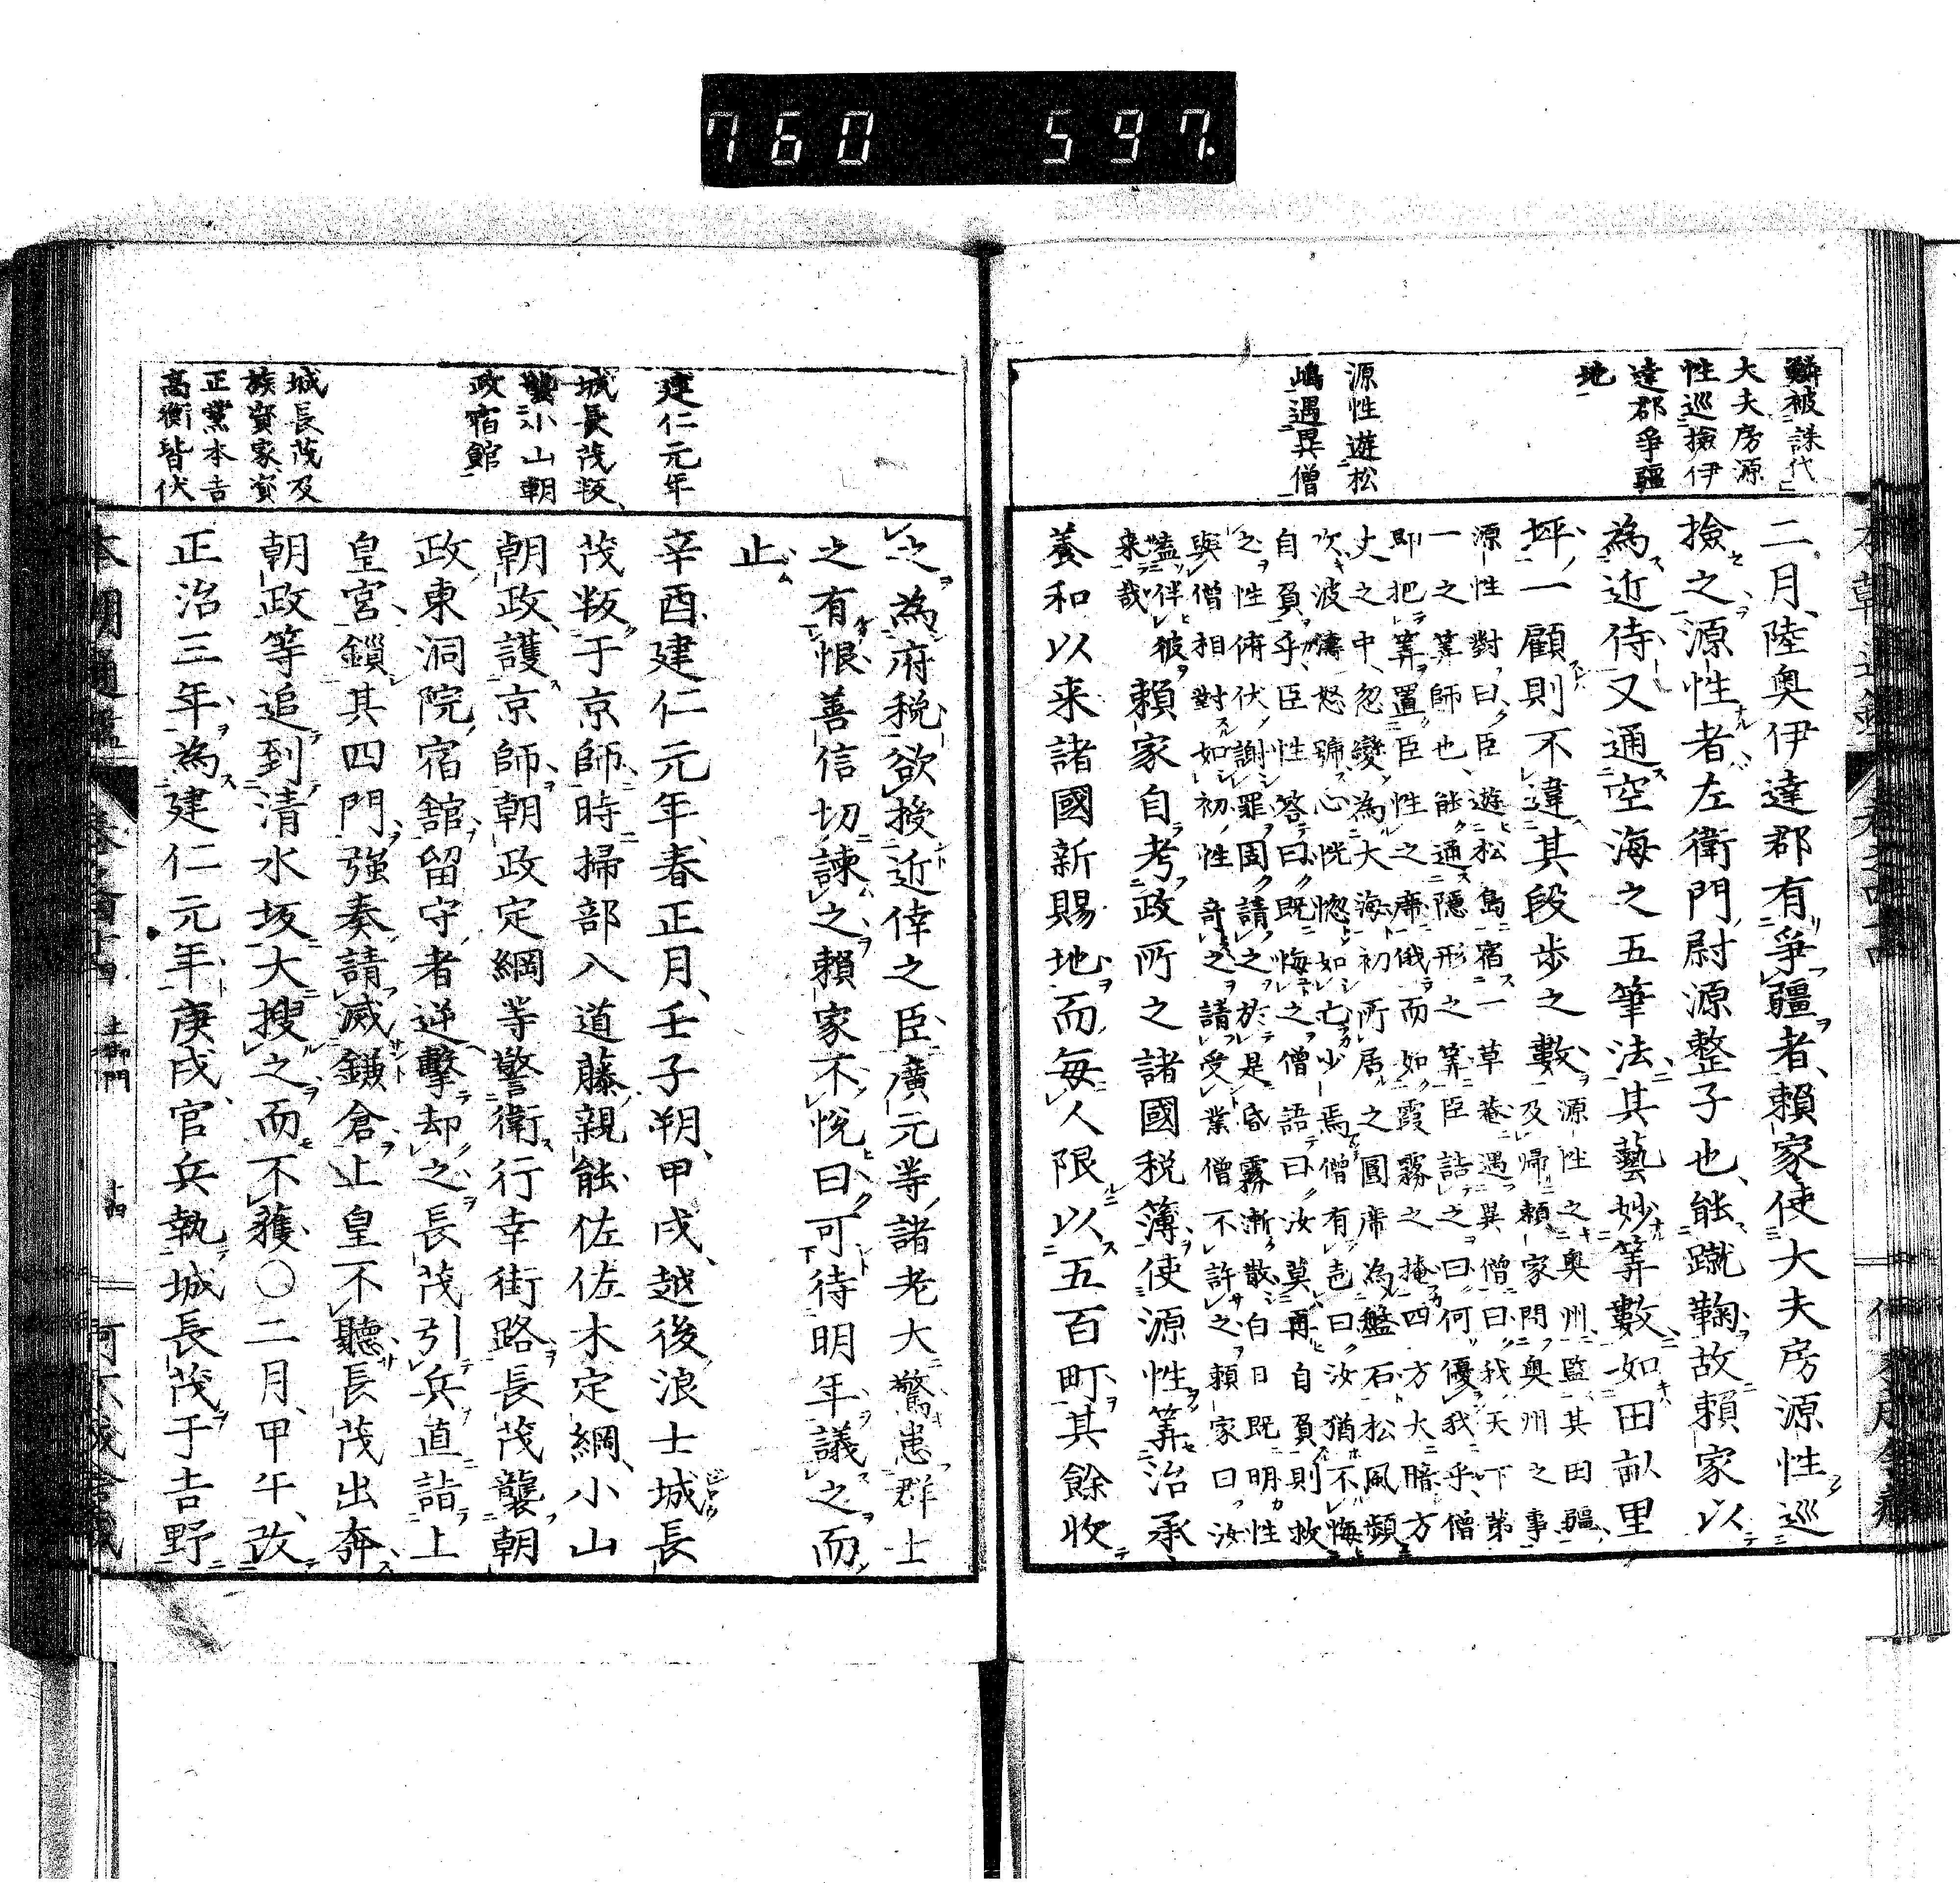 760 597.
鱗被誅代
大夫房源
性巡撿伊
達郡爭疆
地
源性遊松
嶋遇異僧
二月、陸奥伊達郡有爭疆者、賴家使大夫房源性巡
撿之源性者左衛門尉源整子也、能蹴鞠故賴家以
為近侍又通空海之五筆法、其藝妙筭數如田畝里
坪一顧則不違其段歩之數
源性之奥州監其田疆、
及歸賴家問奥州之事
源性對曰、臣遊松島宿一草菴遇異僧曰我天下第
一之筭師也、能通隱形之筭臣詰之曰何優我乎、僧
即把筭置臣性之席俄而如霞霧之掩四方大暗方
丈之中忽變為大海初所居之圓席為盤石松風頻
吹波濤怒號心恍惚如亡少焉僧有声曰汝猶不悔
自負乎、臣性答曰既悔之僧語曰汝莫再自負則救
之性俯伏謝罪固請之於是昏霧漸散白日既明性
與僧相對如初性奇之請受業僧不許之賴家曰汝
盍伴彼
来哉
賴家自考政所之諸國税簿使源性筭治承
養和以来諸國新賜地而毎人限以五百町其餘收
建仁元年
城長茂叛
襲小山朝
政宿館
城長茂及
族資家資
正黨本吉
高衡皆伏
之為府税欲授近倖之臣廣元等諸老大驚患群士
之有恨善信切諫之賴家不悦曰可待明年議之而
止
辛酉建仁元年、春正月、壬子朔、甲戌、越後浪士城長
茂叛于京師時掃部入道藤親能佐佐木定綱、小山
朝政護京師朝政定綱等警衛行幸街路長茂襲朝
政東洞院宿舘留守者逆擊却之長茂引兵直詣上
皇宮鎖其四門强奏請滅鎌倉上皇不聽長茂出奔
朝政等追到清水坂大搜之而不獲〇二月、甲午、改
正治三年為建仁元年庚戌、官兵執城長茂于吉野
土御門